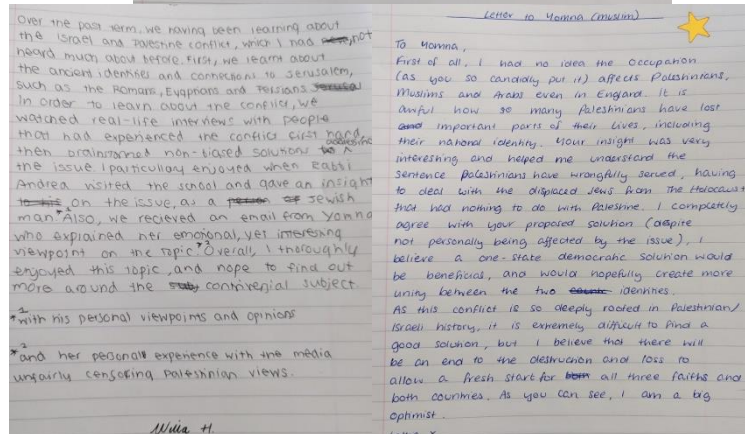 Over the past term, we having been learning about
the Israel and Palestine conflict, which I had not
heard much about before. First, we learnt about
the ancient identities and connections to Jerusalem,
such as the Romans, Eygptians and Persians
In order to learn about the conflict, we
watched real-life interviews with people
that had experienced the conflict first hand,
then brainstormed non-biased solutions
the issue I particullay enjoyed when Rabbi
Andrea visited the school and gave an insight
on the issue, as a Jewish
man *1 Also, we recieved an email from Yomna
who explained her emotional, yet interesting
viewpoint on the topic *2 Overall, I thoroughly
enjoyed this topic, and hope to find out
more around the contraversial subject
*1 with his personal viewpoints and opinions
*2 and her personal experience with the media
unfairly censoring Palestinian views.
H.
Letter to Yomna (muslim)
To Yomna,
First of all, I had no idea the occupation
(as you so candidly put it) affects Palestinians,
Muslims and Arabs even in England. It is
awful how so many Palestinians have lost
important parts of their lives, including
their national identity. Your insight was very
interesting and helped me understand the
sentence Palestinians have wrongfully served, having
to deal with the displaced Jews from the Holocaust
that had nothing to do with Palestine. I completely
agree with your proposed solution (despite
not personally being affected by the issue), I
believe a one-state democratic solution would
be beneficial, and would hopefully create more
unity between the two identities.
As this conflict is so deeply rooted in Palestinian/
Israeli history, it is extremely difficult to find a
good solution, but I believe that there will
be an end to the destruction and loss to
allow a fresh start for all three faiths and
both countries. As you can see, I am a big
optimist.